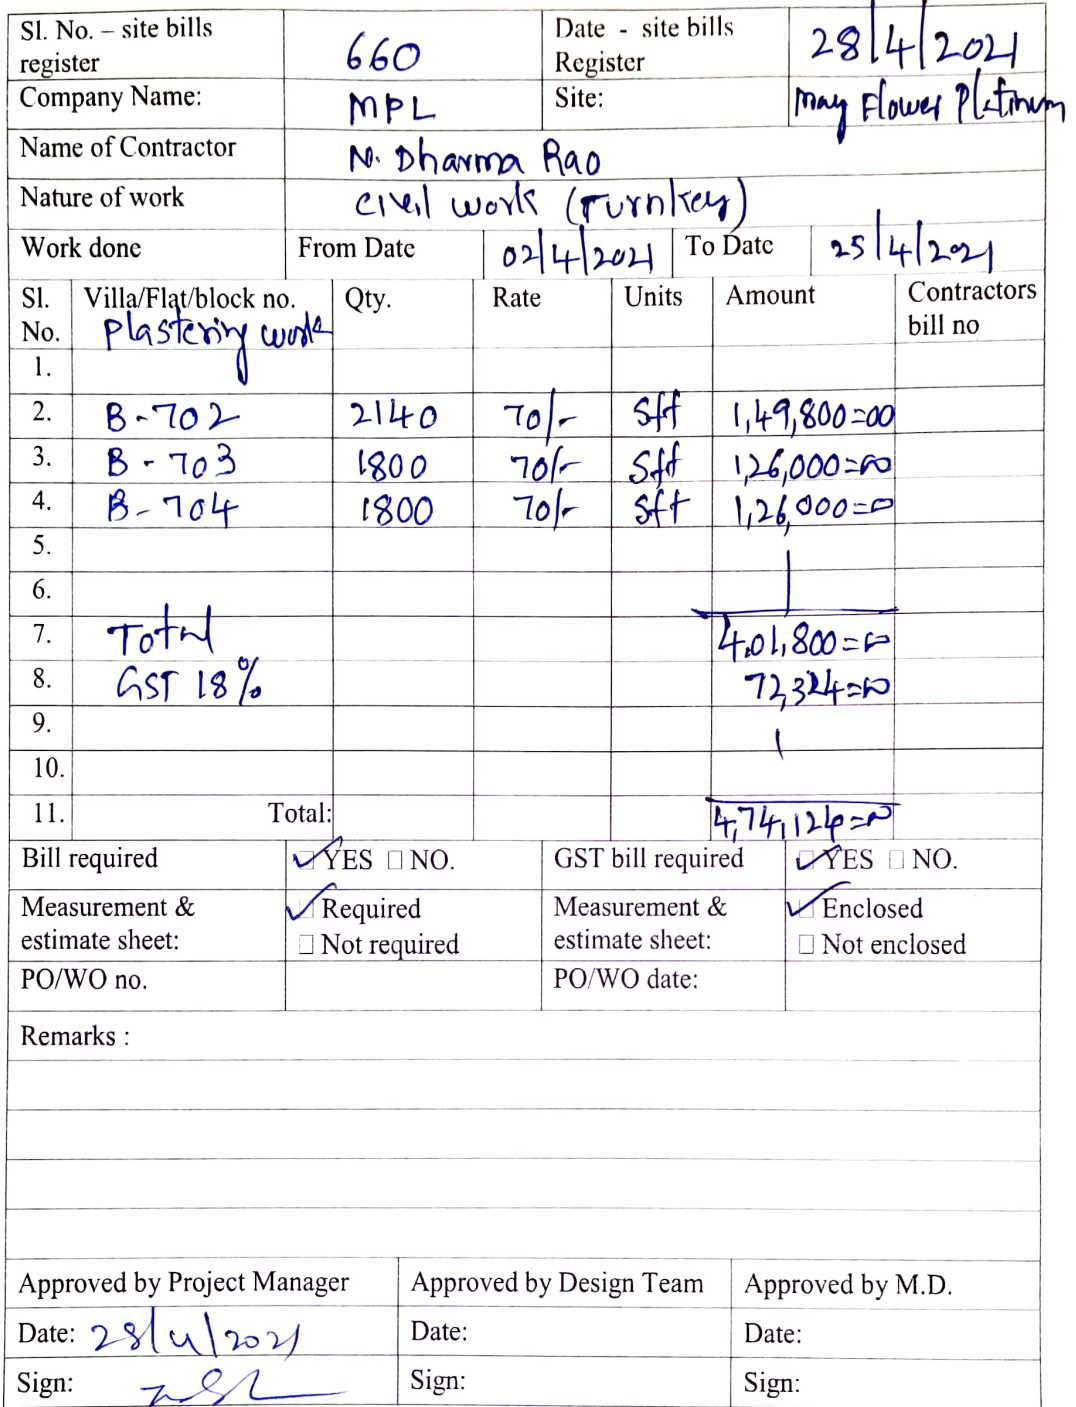 Sl. No. – site bills register 660 Date - site bills Register 28/4/2021
Company Name: MPL Site: May Flower Platinum
Name of Contractor N. Dharma Rao
Nature of work civil work (Turnkey)
Work done From Date 02/4/2021 To Date 25/4/2021
Sl. No. Villa/Flat/block no. Qty. Rate Units Amount Contractors bill no
Plastering work
1.
2. B-702 2140 70/- Sft 1,49,800=00
3. B-703 1800 70/- Sft 1,26,000=00
4. B-704 1800 70/- Sft 1,26,000=00
5.
6.
7. Total 4,01,800=00
8. GST 18% 72,324=00
9.
10.
11. Total: 4,74,124=00
Bill required YES NO. GST bill required YES NO.
Measurement & estimate sheet: Required Measurement & estimate sheet: Enclosed
Not required Not enclosed
PO/WO no. PO/WO date:
Remarks :
Approved by Project Manager Approved by Design Team Approved by M.D.
Date: 28/4/2021 Date: Date:
Sign: Sign: Sign: